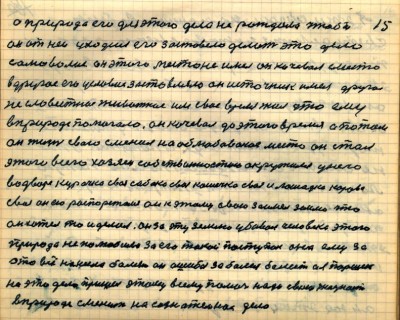 а природа его для этого дела не рождала чтоб 15
он от неи уходил его заставело делат это дело
самоволие он этого место не имел он кочевал с место
в другое его условие заставляло он источник имел друга
не словестное животное им свое время жил это ему
в природе помогало. он кочевал до этого время а потом
он таку свого сменил на облюбованое место он стал
этого всего хозяен собственностию окружился у него
во дворе курочка своя сабака своя кошечка своя и лошадка корова
своя он ею распоретал он к этому свою землю занял что
он хотел то и делал. он за эту землю убивал человека этого
природа не полюбила за его такой поступок она ему за
это всё нанесла болезн он ошибся заболел болеет ал поршек
на это дело пришел этому всему помоч надо свою жизню
в природе сменит на сознателное дело